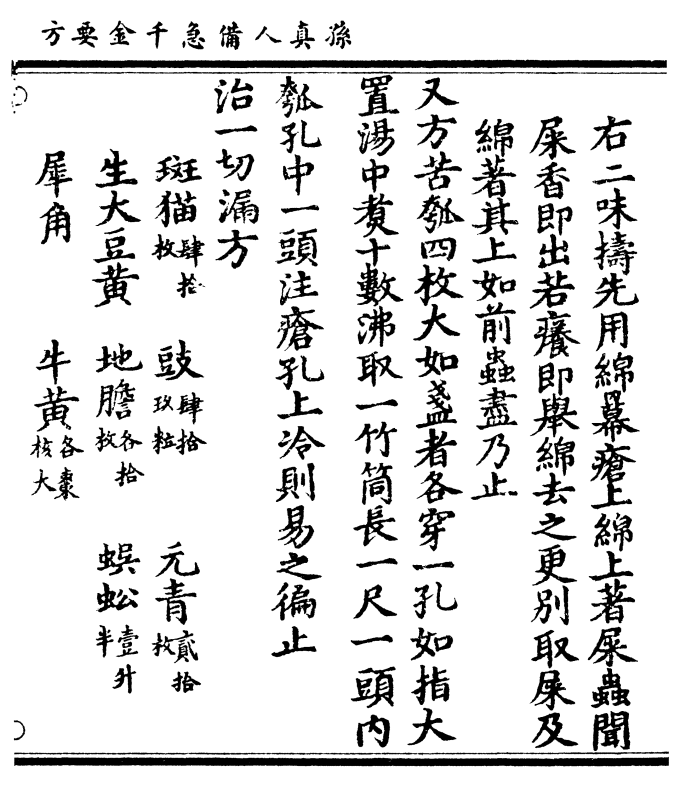 孫真人備急千金要方
右二味擣先用綿羃瘡上綿上著屎蟲聞
屎香即出若癢即舉綿去之更別取屎及
綿著其上如前蟲盡乃止
又方苦瓠四枚大如盞者各穿一孔如指大
置湯中煑十數沸取一竹筒長一尺一頭内
瓠孔中一頭注瘡孔上冷則易之徧止
治一切漏方
斑猫肆拾枚 豉肆拾玖粒 元青貳拾枚
生大豆黃 地膽各拾枚 蜈蚣壹升半
犀角 牛黃各棗核大